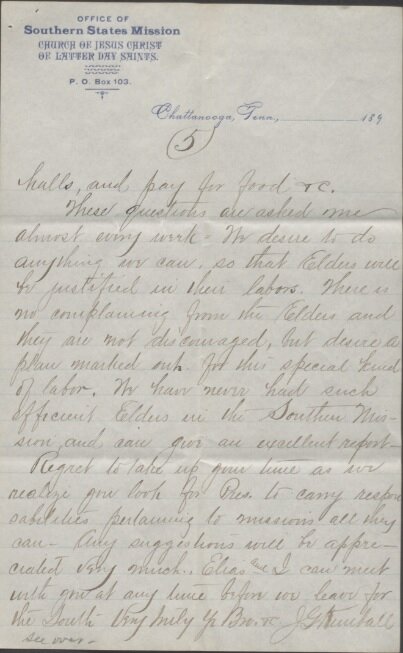 OFFICE OF
Southern States Mission
CHURCH OF JESUS CHRIST
OF LATTER DAY SAINTS.
P. O. Box 103.
Chattanooga, Tenn., 189
(5)
halls, and pay for food &c.
These questions are asked me
almost every week - We desire to do
anything we can, so that Elders will
be justified in their labors. There is
no complaining from the Elders and
they are not discouraged, but desire a
plan marked out for this special kind
of labor. We have never had such
efficient Elders in the Southern Mis-
sion, and can give an excellent report -
Regret to take up your time as we
realize you look for Pres. to carry respon
sabilities pertaining to missions all they
can - Any suggestions will be appre-
ciated very much. Elias and I can meet
with you at any time before we leave for
the South - Very truly Yr Bro. &c J G Kimball
see over -